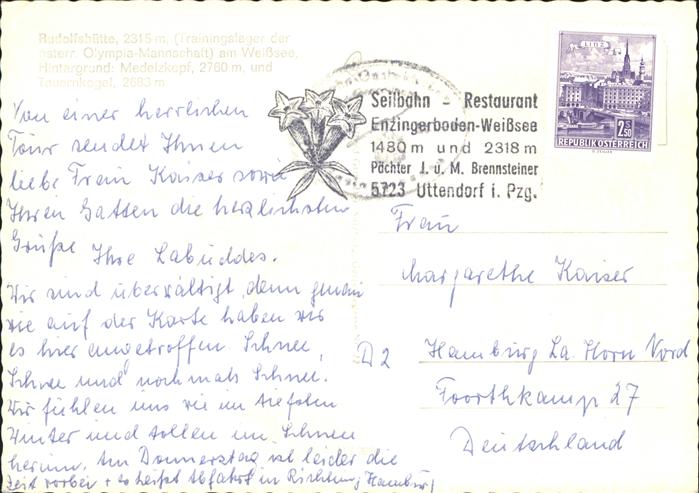 Rudolfshütte, 2315 m, (Trainingslager der
österr. Olympia-Mannschaft) am Weißsee,
Hintergrund: Medelzkopf, 2760 m, und
Tauernkogel, 2683 m
Von einer herrlichen
Tour sendet Ihnen
liebe Frau Kaiser sowie
Ihren Gatten die herzlichsten
Grüße Ihre Labuddes.
Wir sind überwältigt, denn genau
wie auf der Karte haben wir
es hier angetroffen. Schnee,
Schnee und nochmals Schnee.
Wir fühlen uns wie im tiefsten
Winter und tollen im Schnee
herum. Am Donnerstag ist leider die
Zeit vorbei + es heißt Abfahrt in Richtung Hamburg
Seilbahn - Restaurant
Enzingerboden-Weißsee
1480 m und 2318 m
Pächter J. u. M. Brennsteiner
5723 Uttendorf i. Pzg.
LINZ
2.50
REPUBLIK ÖSTERREICH
Frau
Margarethe Kaiser
D2 Hamburg La. Horn Nord
Foorthkamp 27
Deutschland